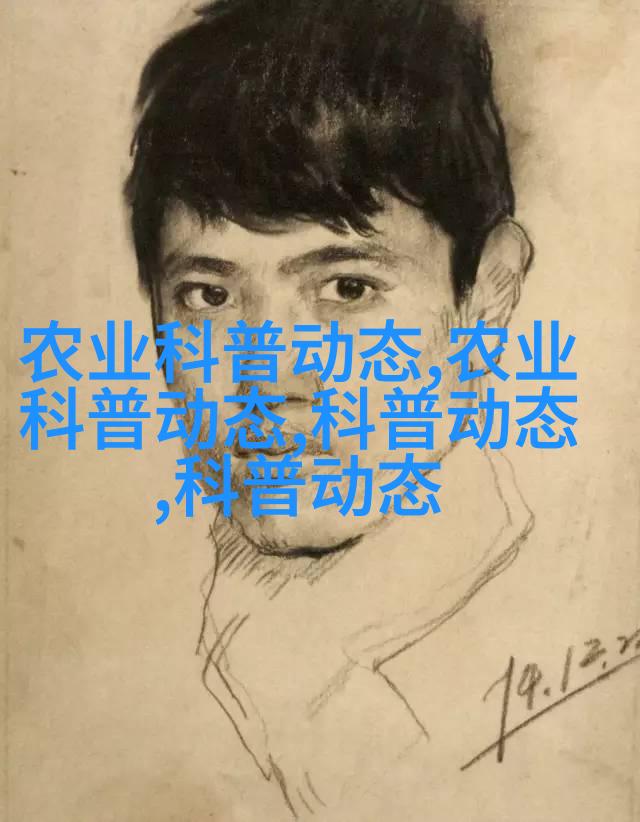 农业科普动态,农业
科普动态,科普动态
,科普动态